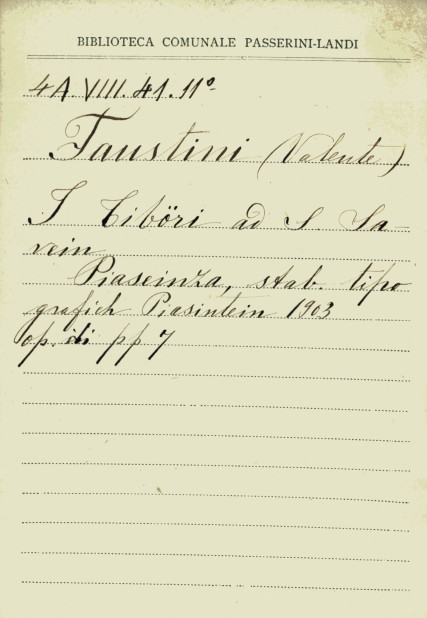 BIBLIOTECA COMUNALE PASSERINI-LANDI
4A.VIII.41.11º
Faustini (Valente)
I Tiböri ad S. Sa-
vein
Piaseinza, stab. tipo
grafich Piasintein 1903
op. di pp 7